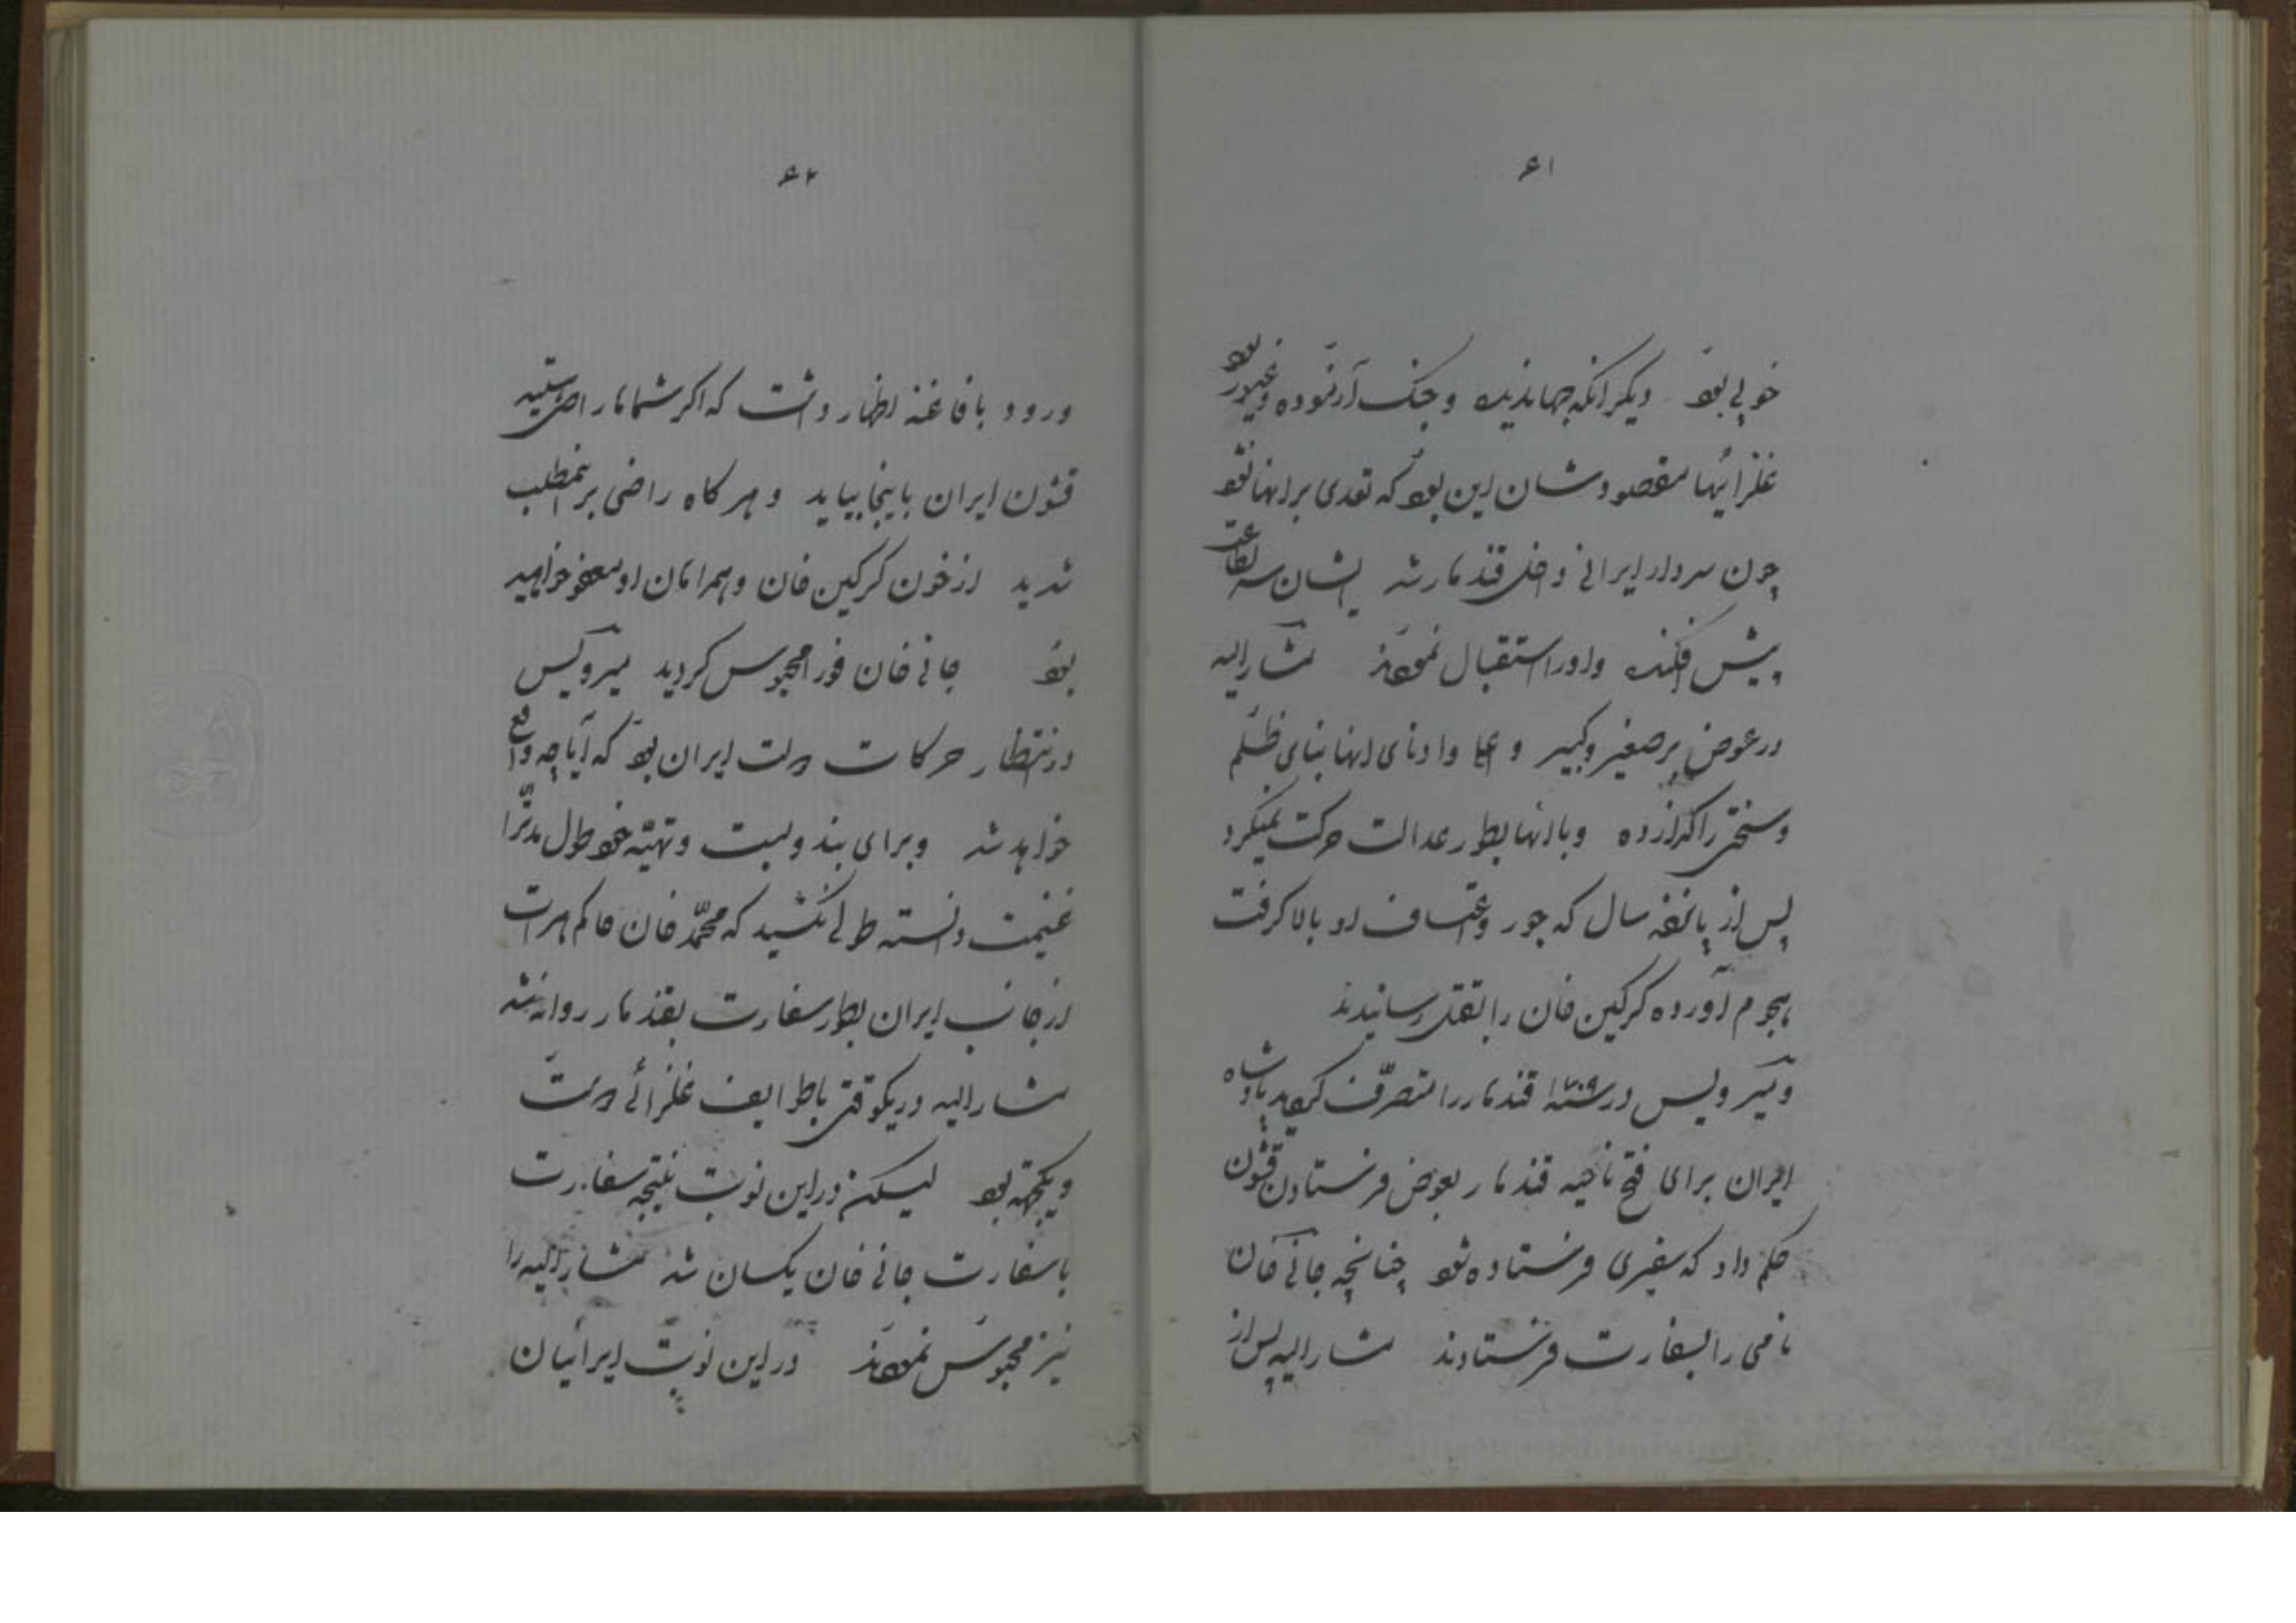 ۶۱
خوبی بود دیگر انکه جهاندیده و جنک آزموده و غیور بود
غلزائیها مقصودشان این بود که تعدی بر انها نشود
چون سردار ایرانی داخل قندهار شد ایشان سر اطاعت
پیش افکنده و او را استقبال نمودند مشارالیه
در عوض بر صغیر و کبیر و اعلا و ادنای انها بنای ظلم
و سختی را گذارده و با انها بطور عدالت حرکت نمیکرد
پس از پانزده سال که جور و اعتساف او بالا کرفت
هجوم آورده کرکین خان را بقتل رسانیدند
و میر ویس در سنه ۱۷۰۹ قندهار را متصرف کردید پادشاه
ایران برای فتح ناحیه قندهار بعوض فرستادن قشون
حکم داد که سفیری فرستاده شود چنانچه جانی خان
نامی را بسفارت فرستادند مشارالیه پس از
۶۲
ورود بافاغنه اظهار داشت که اکر شماها راضی نیستید
قشون ایران باینجا بیاید و هر کاه راضی بر اینمطلب
شدید از خون کرکین خان و همراهان او معفو خواهید
بود جانی خان فورا محبوس کردید میرویس
در انتظار حرکات دولت ایران بود که آیا چه واقع
خواهد شد و برای بند و بست و تهیّه خود طول مدّترا
غنیمت دانسته طولی نکشید که محمّد خان حاکم هرات
از جانب ایران بطور سفارت بقندهار روانه شد
مشارالیه در یکوقتی با طوایف غلزائی دوست
و یکجهة بود لیکن در این نوبت نتیجه سفارت
با سفارت جانی خان یکسان شد مشارالیه را
نیز محبوس نمودند در این نوبت ایرانیان